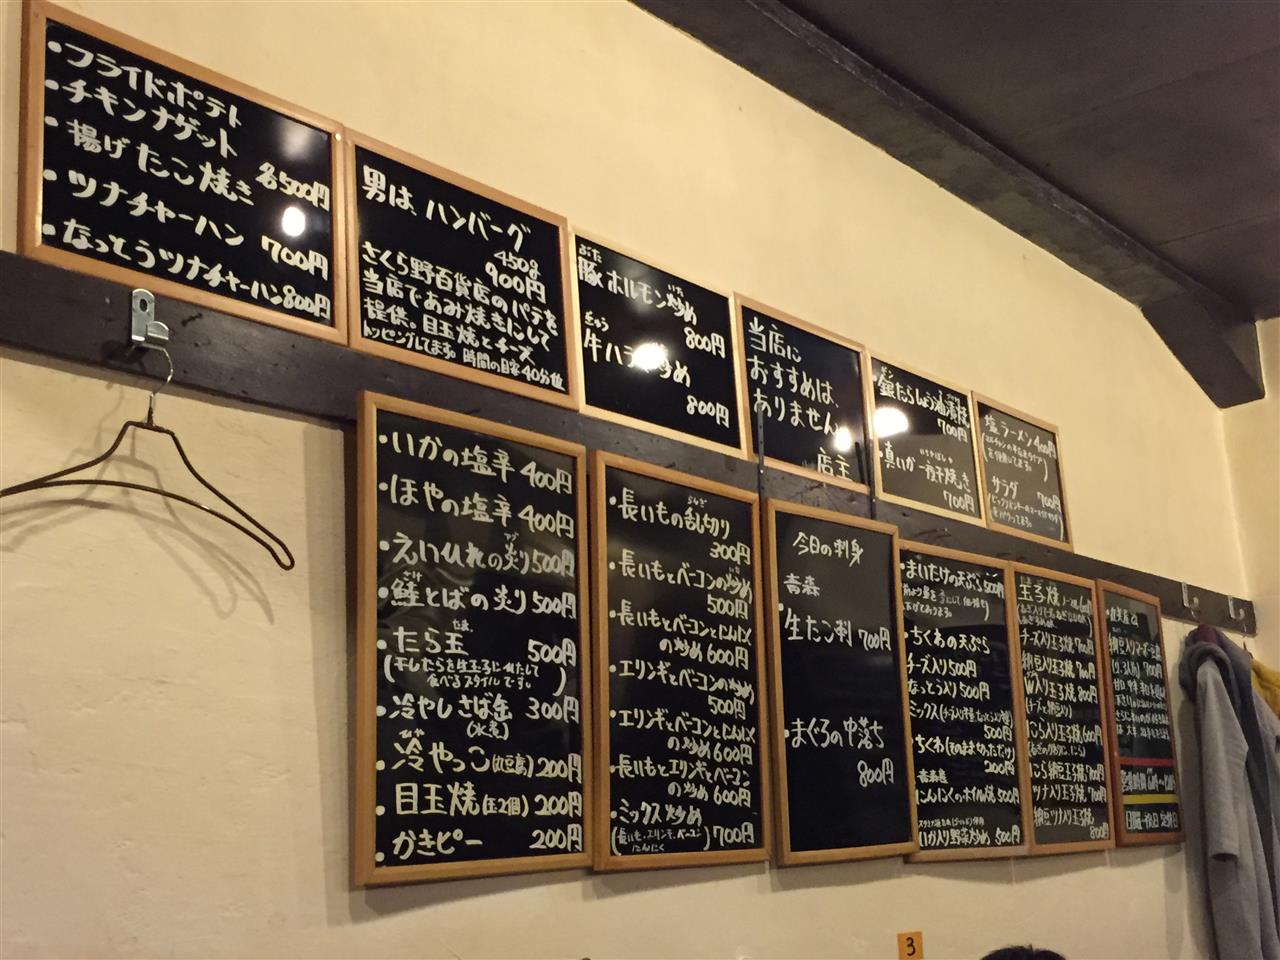 ・フライドポテト
・チキンナゲット
・揚げたこ焼き 各500円
・ツナチャーハン 700円
・なっとうツナチャーハン 800円
男は、ハンバーグ
450g
900円
さくら野百貨店のパテを
当店であみ焼きにして
提供。目玉焼とチーズ
トッピングしてます。時間の目安40分位
ぶた
豚ホルモン炒め
800円
ぎゅう
牛ハラミ炒め
800円
当店に
おすすめは、
ありません。
店主
ギン
・銀たらしょう油漬焼
700円
・真いか一夜干焼き
700円
塩ラーメン 400円
サラダ 700円
・いかの塩辛 400円
・ほやの塩辛 400円
・えいひれの炙り 500円
さけ
・鮭とばの炙り 500円
たま
・たら玉 500円
(干したらを生玉子にひたして
食べるスタイルです。)
・冷やしさば缶 300円
(水煮)
ひや
・冷やっこ(丸豆腐) 200円
・目玉焼(玉2個) 200円
・かきピー 200円
らんぎ
・長いもの乱切り
300円
・長いもとベーコンの炒め
500円
・長いもとベーコンとにんにく
の炒め 600円
・エリンギとベーコンの炒め
500円
・エリンギとベーコンとにんにく
の炒め 600円
・長いもとエリンギとベーコン
の炒め 600円
・ミックス炒め
(長いも、エリンギ、ベーコン
にんにく) 700円
今日の刺身
青森
・生たこ刺 700円
・まぐろの中落ち
800円
・まいたけの天ぷら 500円
・ちくわの天ぷら
チーズ入り 500円
なっとう入り 500円
ミックス(チーズ入り半分、なっとう入り半分)
500円
・ちくわ(そのまま切っただけ)
200円
青森産
・にんにくのホイル焼 500円
・いか入り野菜炒め 500円
玉子焼
チーズ入り玉子焼 700円
納豆入り玉子焼 700円
W入り玉子焼 800円
(チーズと納豆入り)
にら入り玉子焼 600円
にら納豆玉子焼 700円
ツナ入り玉子焼 700円
納豆ツナ入り玉子焼
800円
納豆入りマーボー豆腐
日曜・祝日 定休日
3